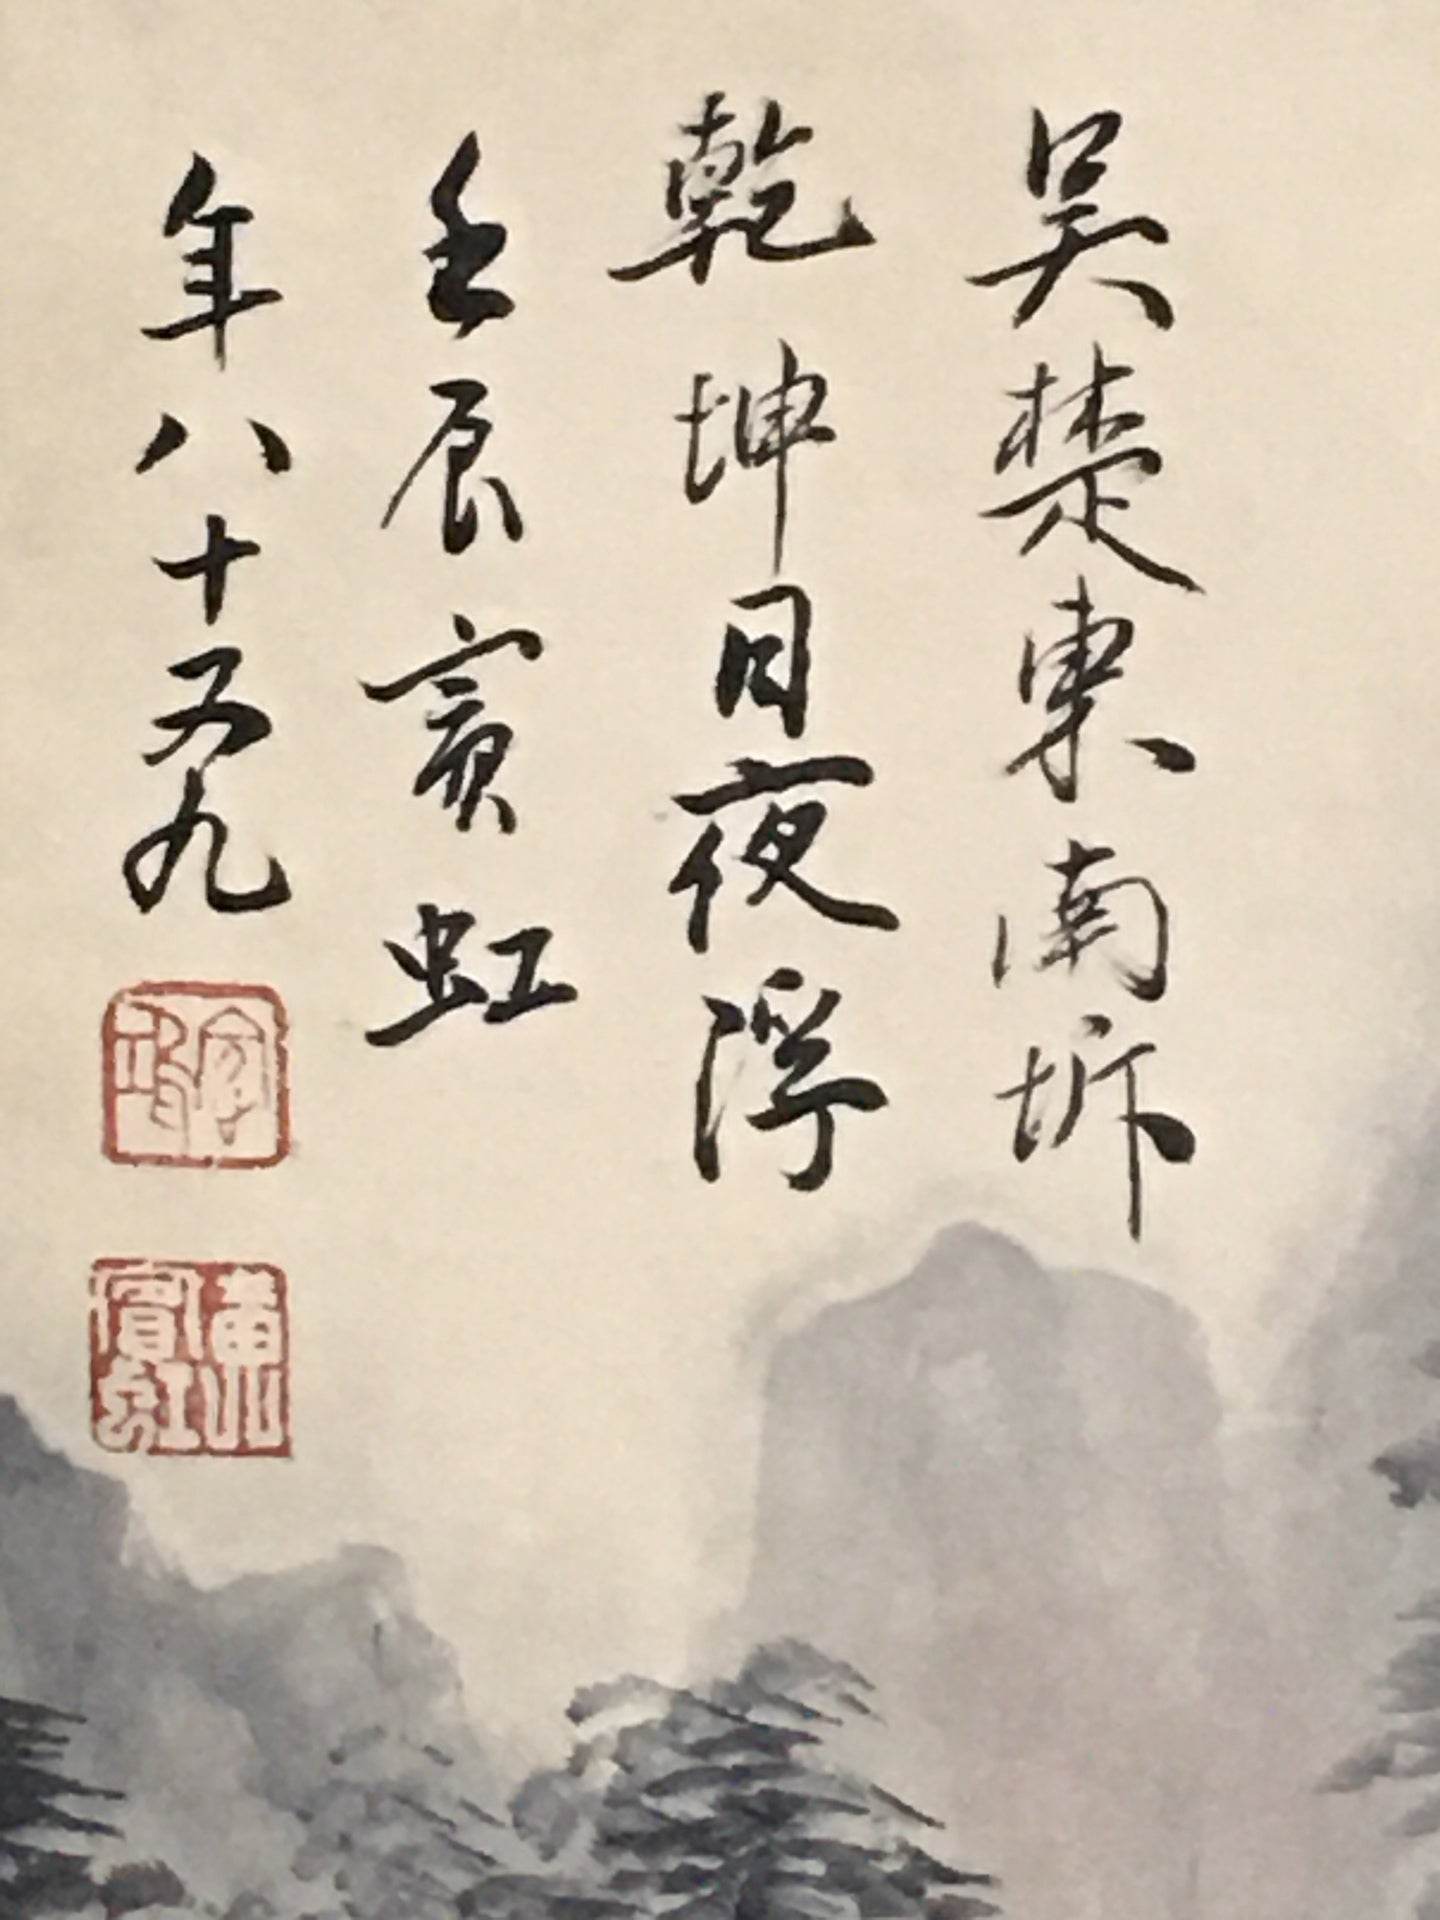 吴楚東南坼
乾坤日夜浮
壬辰賓虹
年八十又九
黃賓虹